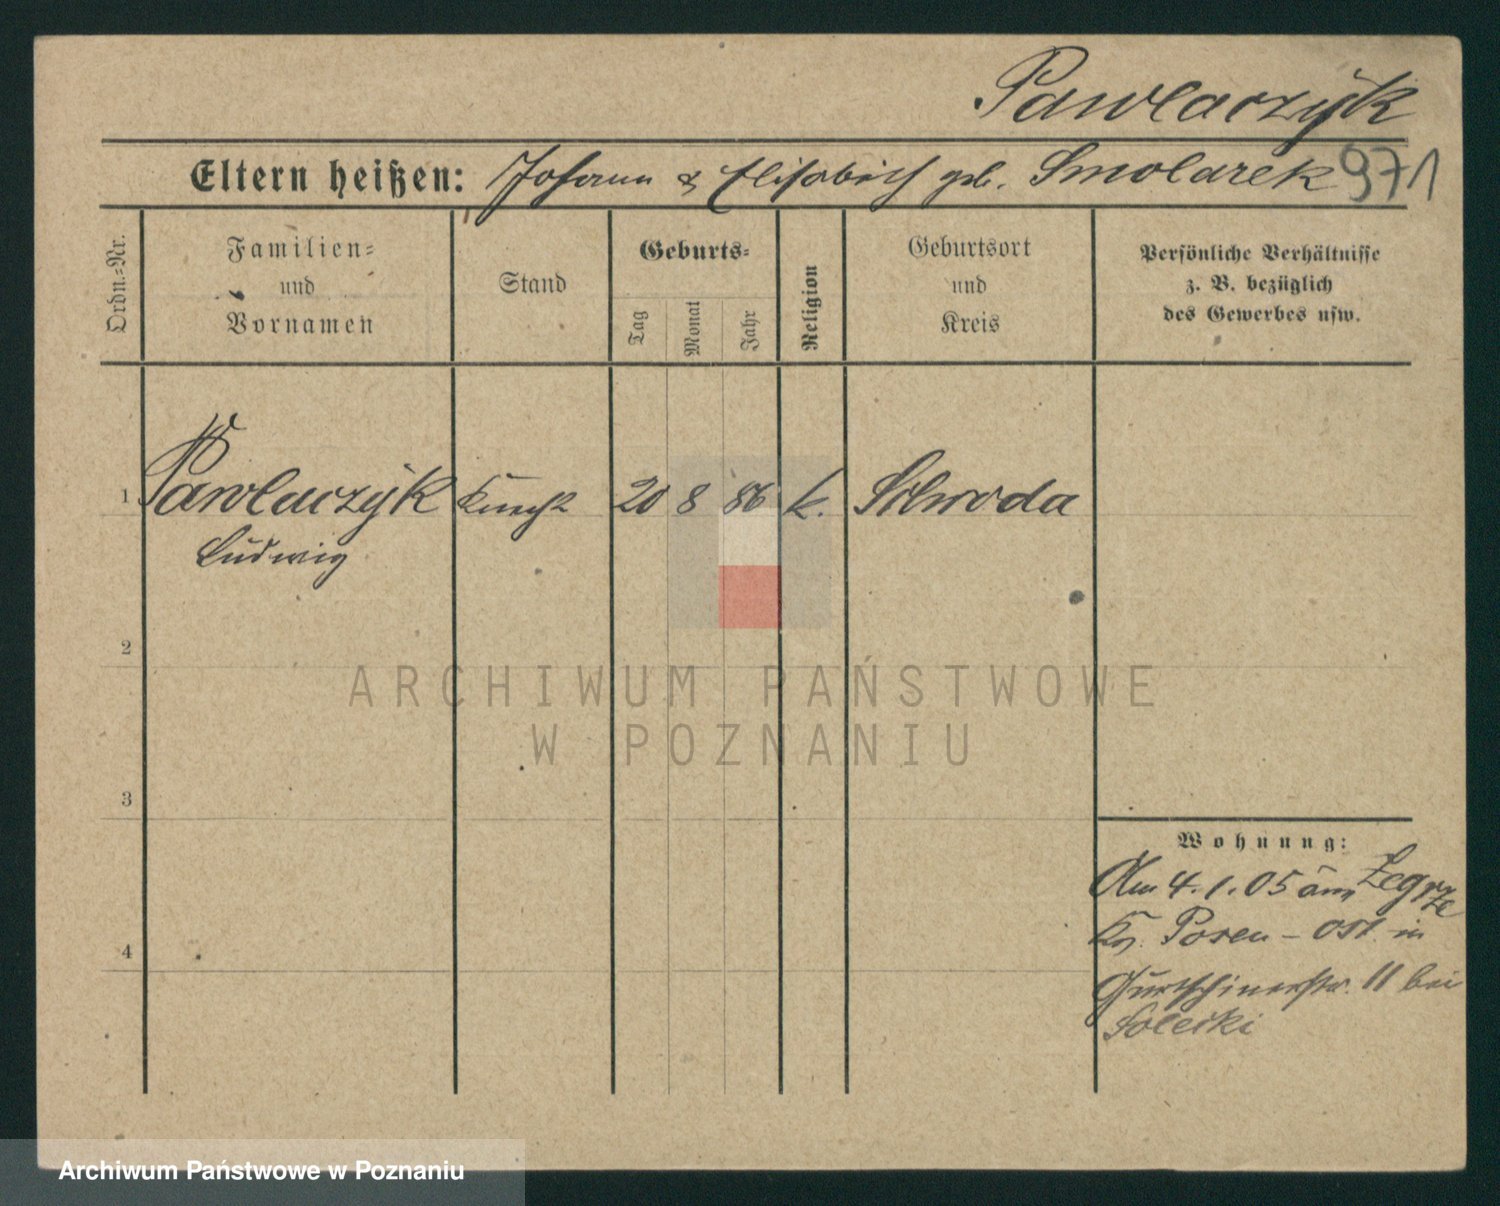 Pawlaczÿk
Eltern heißen: Johann & Elisabeth geb. Smolarek 971
Ordn.=Nr.
Familien=
und
Vornamen
Stand
Geburts=
Tag
Monat
Jahr
Religion
Geburtsort
und
Kreis
Persönliche Verhältnisse
z. B. bezüglich
des Gewerbes usw.
1 Pawlaczÿk Knecht 20 8 86 k. Schroda
Ludwig
2
3
4
Wohnung:
Am 4.1.05 aus Zegrze
Kr. Posen - Ost in
Gurtschinerstr. 11 bei
Solecki
ARCHIWUM PAŃSTWOWE
W POZNANIU
Archiwum Państwowe w Poznaniu